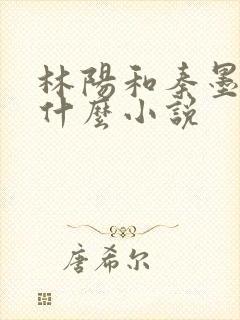 林陽和秦墨
什麼小說
唐希尔